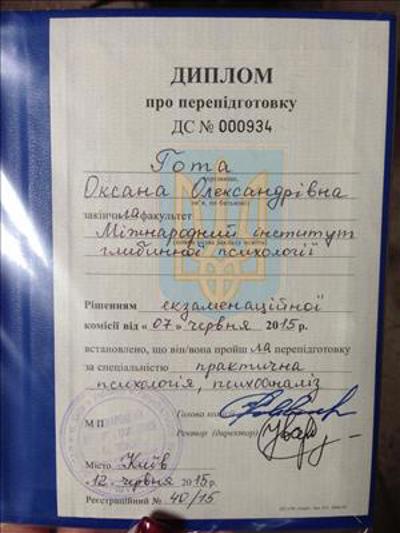 ДИПЛОМ
про перепідготовку
ДС № 000934
Гота
прізвище,
Оксана Олександрівна
ім'я, по батькові)
закінчила факультет
Міжнародний інститут
(повна назва закладу освіти)
глибинної психології
Рішенням екзаменаційної
комісії від « 07 » червня 2015 р.
встановлено, що він/вона пройшла перепідготовку
за спеціальністю практична
психологія, психоаналіз
Голова комісії
М П
Ректор (директор)
Місто Київ
12 червня 2015 р.
Реєстраційний № 40/15